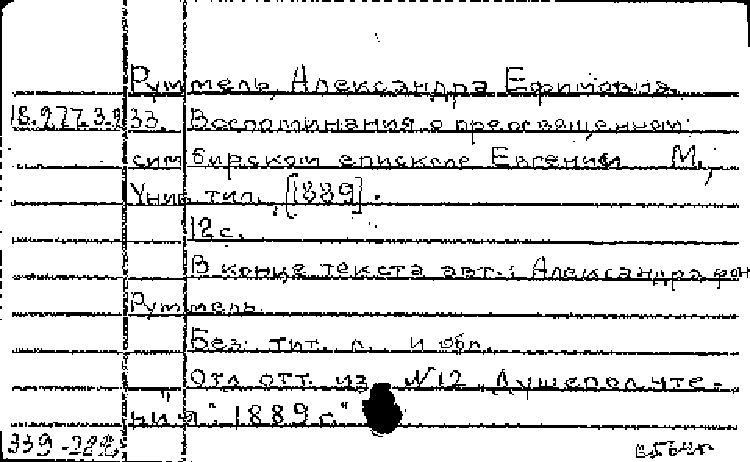 Руммель, Александра Ефимовна
18.277.3.
33. Воспоминания о преосвященном
симбирском епископе Евгении М.,
Унив. тип., [1889].
12 с.
В конце текста авт.: Александра фон
Руммель
Без тит. л. и обл.
Отд. отт. из №12 „Душеполн. чте-
ния". 1889 г."
339